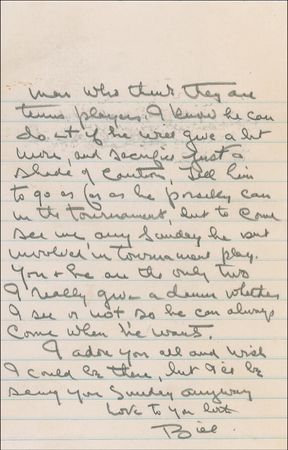 men who think they are
tennis players. I know he can
do it if he will give a bit
more, and sacrifice just a
shade of caution, tell him
to go as far as he possibly can
in the tournament, but to come
see me any Sunday he isnt
involved in tournament play.
You & he are the only two
I really give a damn whether
I see or not so he can always
come when he wants.
I adore you all and wish
I could be there, but I'll be
seeing you Sunday anyway
Love to you both
Bill